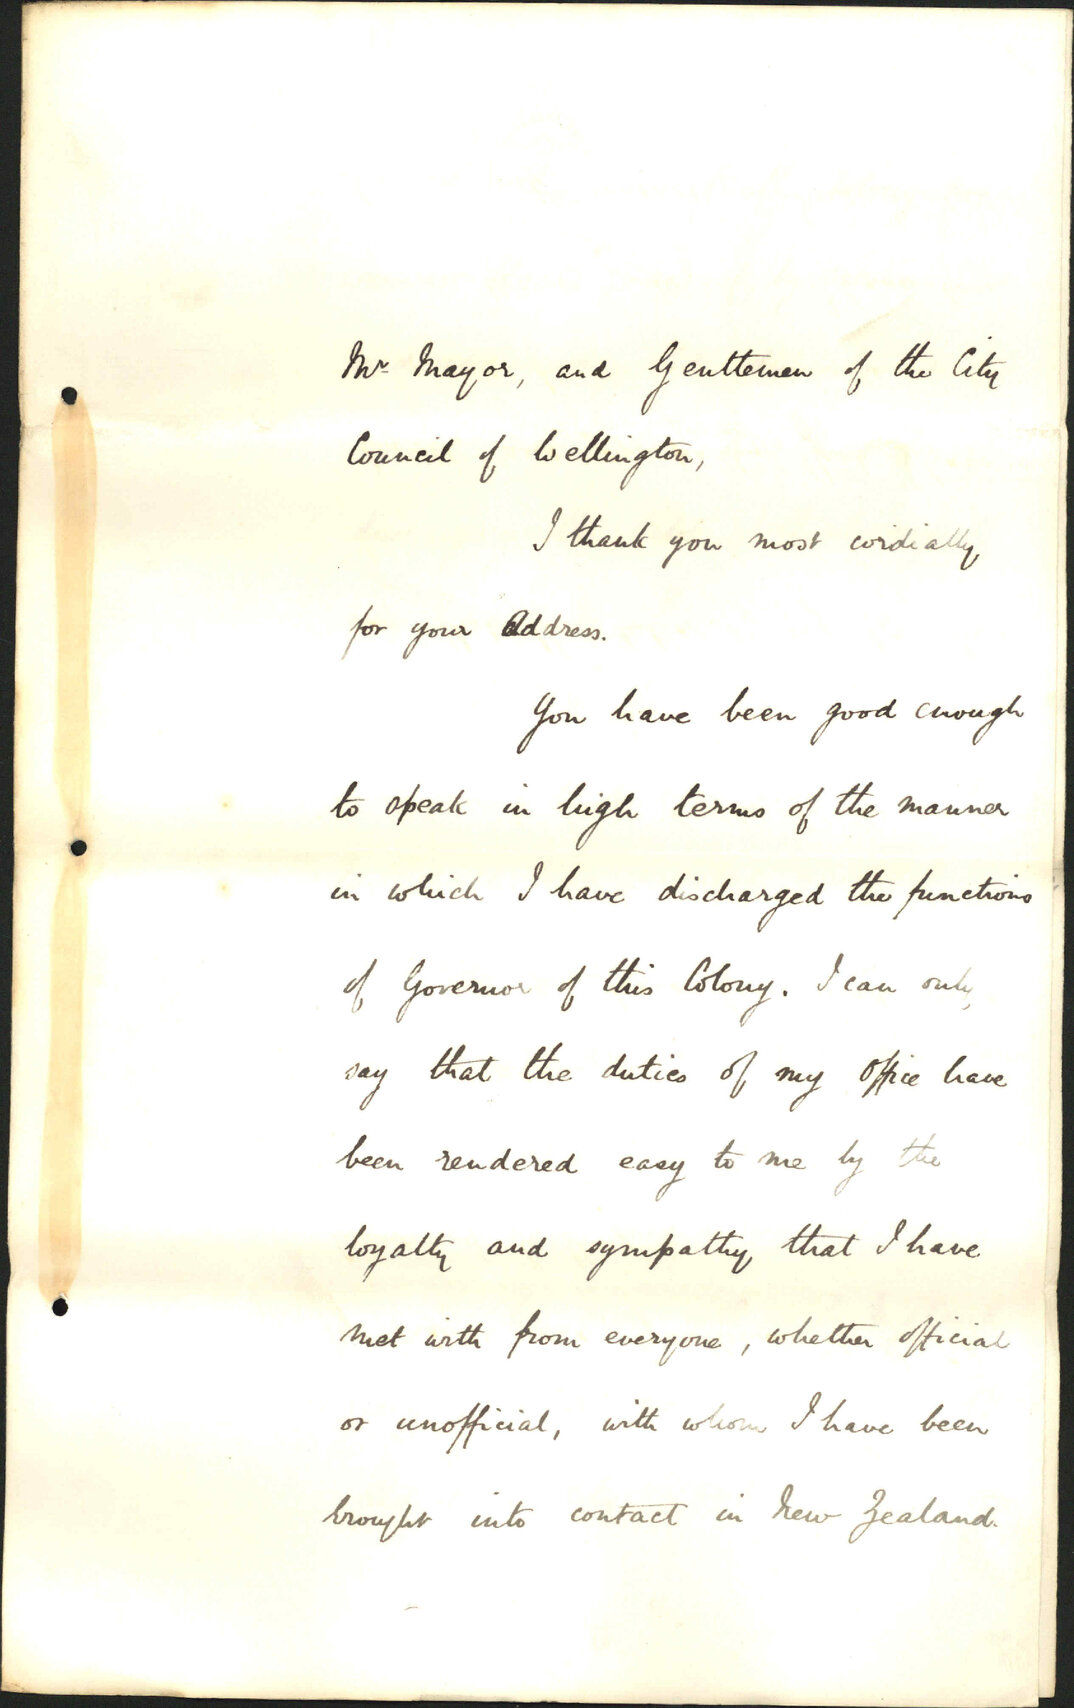 Mr Mayor, and Gentlemen of the City
Council of Wellington,
I thank you most cordially,
for your Address.
You have been good enough
to speak in high terms of the manner
in which I have discharged the functions
of Governor of this Colony. I can only,
say that the duties of my office have
been rendered easy to me by the
loyalty and sympathy, that I have
met with from everyone, whether official
or unofficial, with whom I have been
brought into contact in New Zealand.